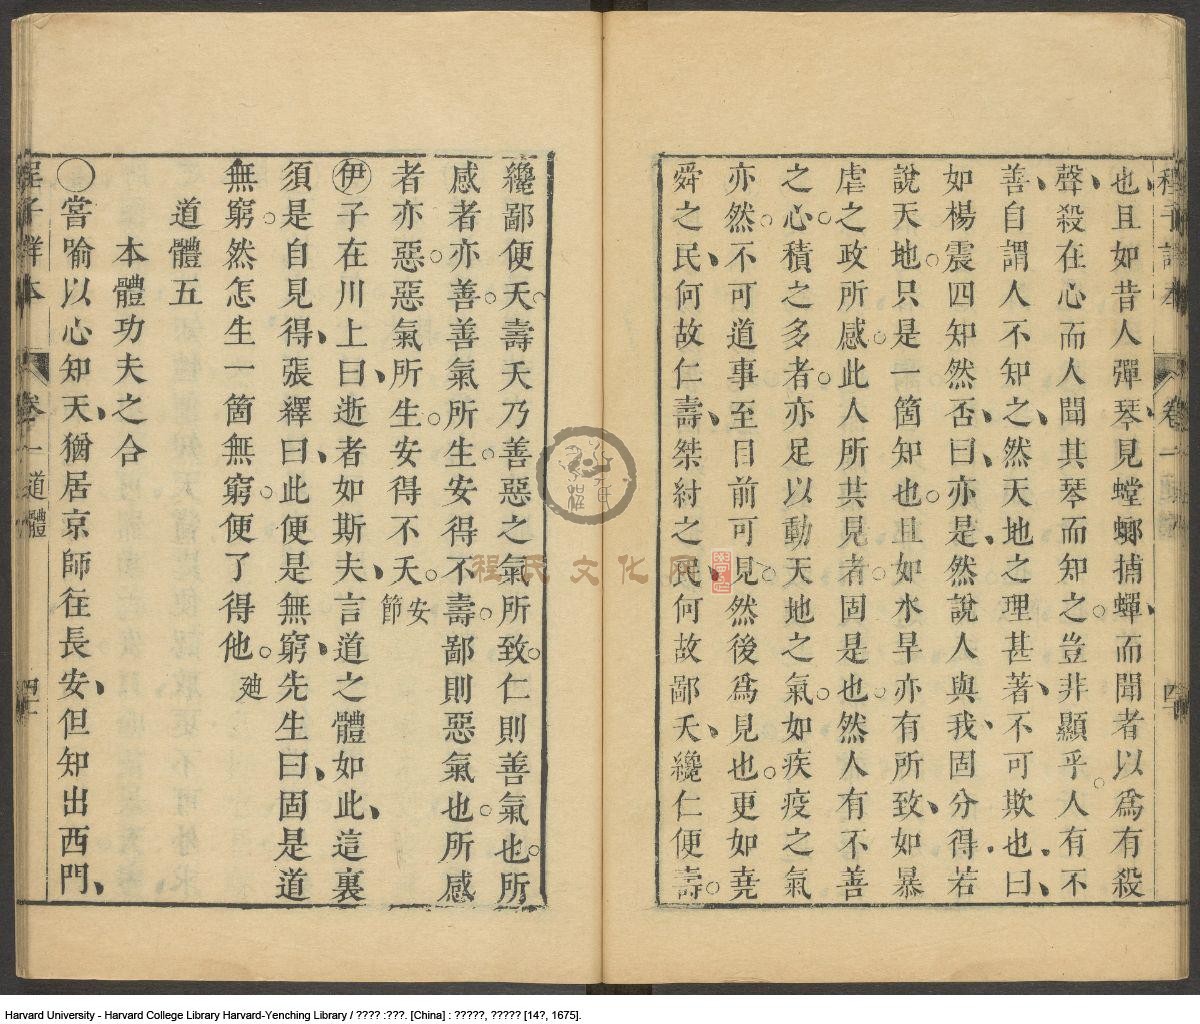 也且如昔人彈琴見螳螂捕蟬而聞者以爲有殺
聲殺在心而人聞其琴而知之豈非顯乎人有不
善自謂人不知之然天地之理甚著不可欺也曰
如楊震四知然否曰亦是然說人與我固分得若
說天地只是一箇知也且如水旱亦有所致如暴
虐之政所感此人所共見者固是也然人有不善
之心積之多者亦足以動天地之氣如疾疫之氣
亦然不可道事至目前可見然後爲見也更如堯
舜之民何故仁壽桀紂之民何故鄙夭纔仁便壽
纔鄙便夭壽夭乃善惡之氣所致仁則善氣也所
感者亦善善氣所生安得不壽鄙則惡氣也所感
者亦惡惡氣所生安得不夭安節
伊子在川上曰逝者如斯夫言道之體如此這裏
須是自見得張繹曰此便是無窮先生曰固是道
無窮然怎生一箇無窮便了得他 廸
道體五
本體功夫之合
嘗喻以心知天猶居京師往長安但知出西門
程子詳本 卷一 道體
程氏文化网
Harvard University - Harvard College Library Harvard-Yenching Library / ???? :???. [China] : ?????, ????? [14?, 1675].